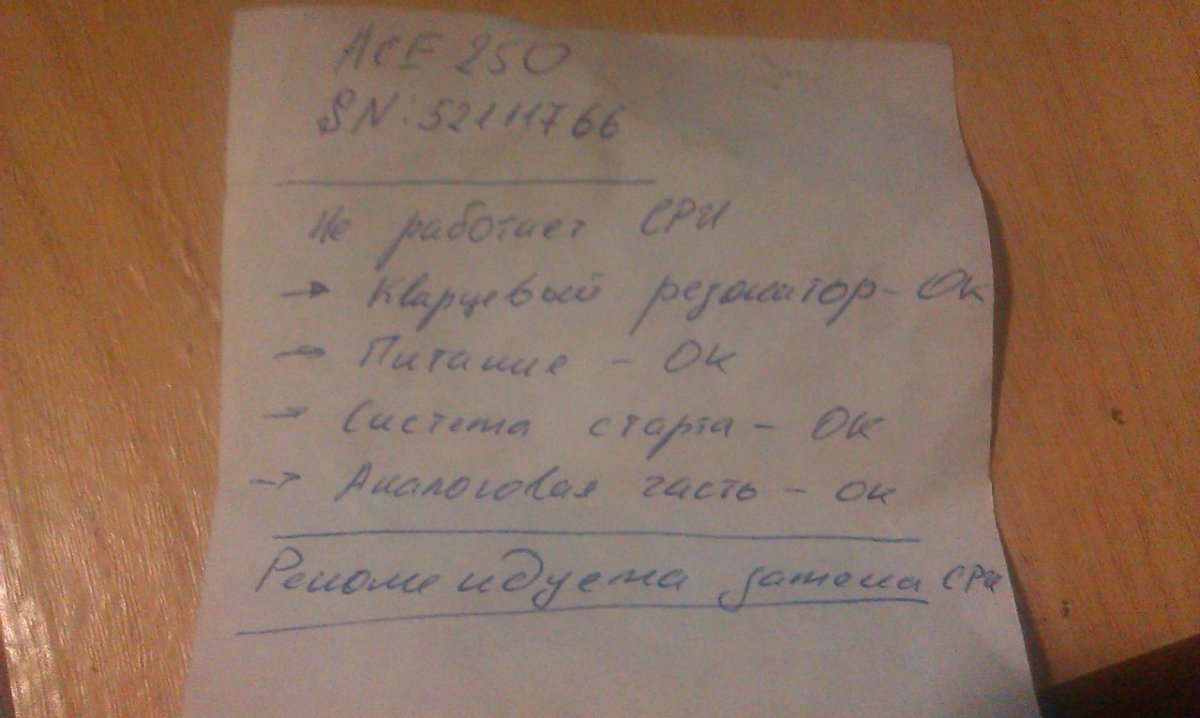 ACE 250
SN: 52111766
Не работает CPU
→ Кварцевый резонатор - Ок
→ Питание - ОК
→ Система старта - ОК
→ Аналоговая часть - ок
Рекомендуема замена CPU